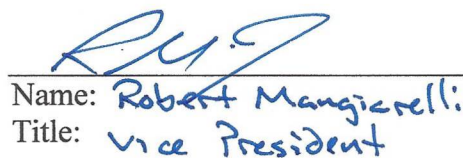 Name: Robert Mangiarelli
Title: Vice President